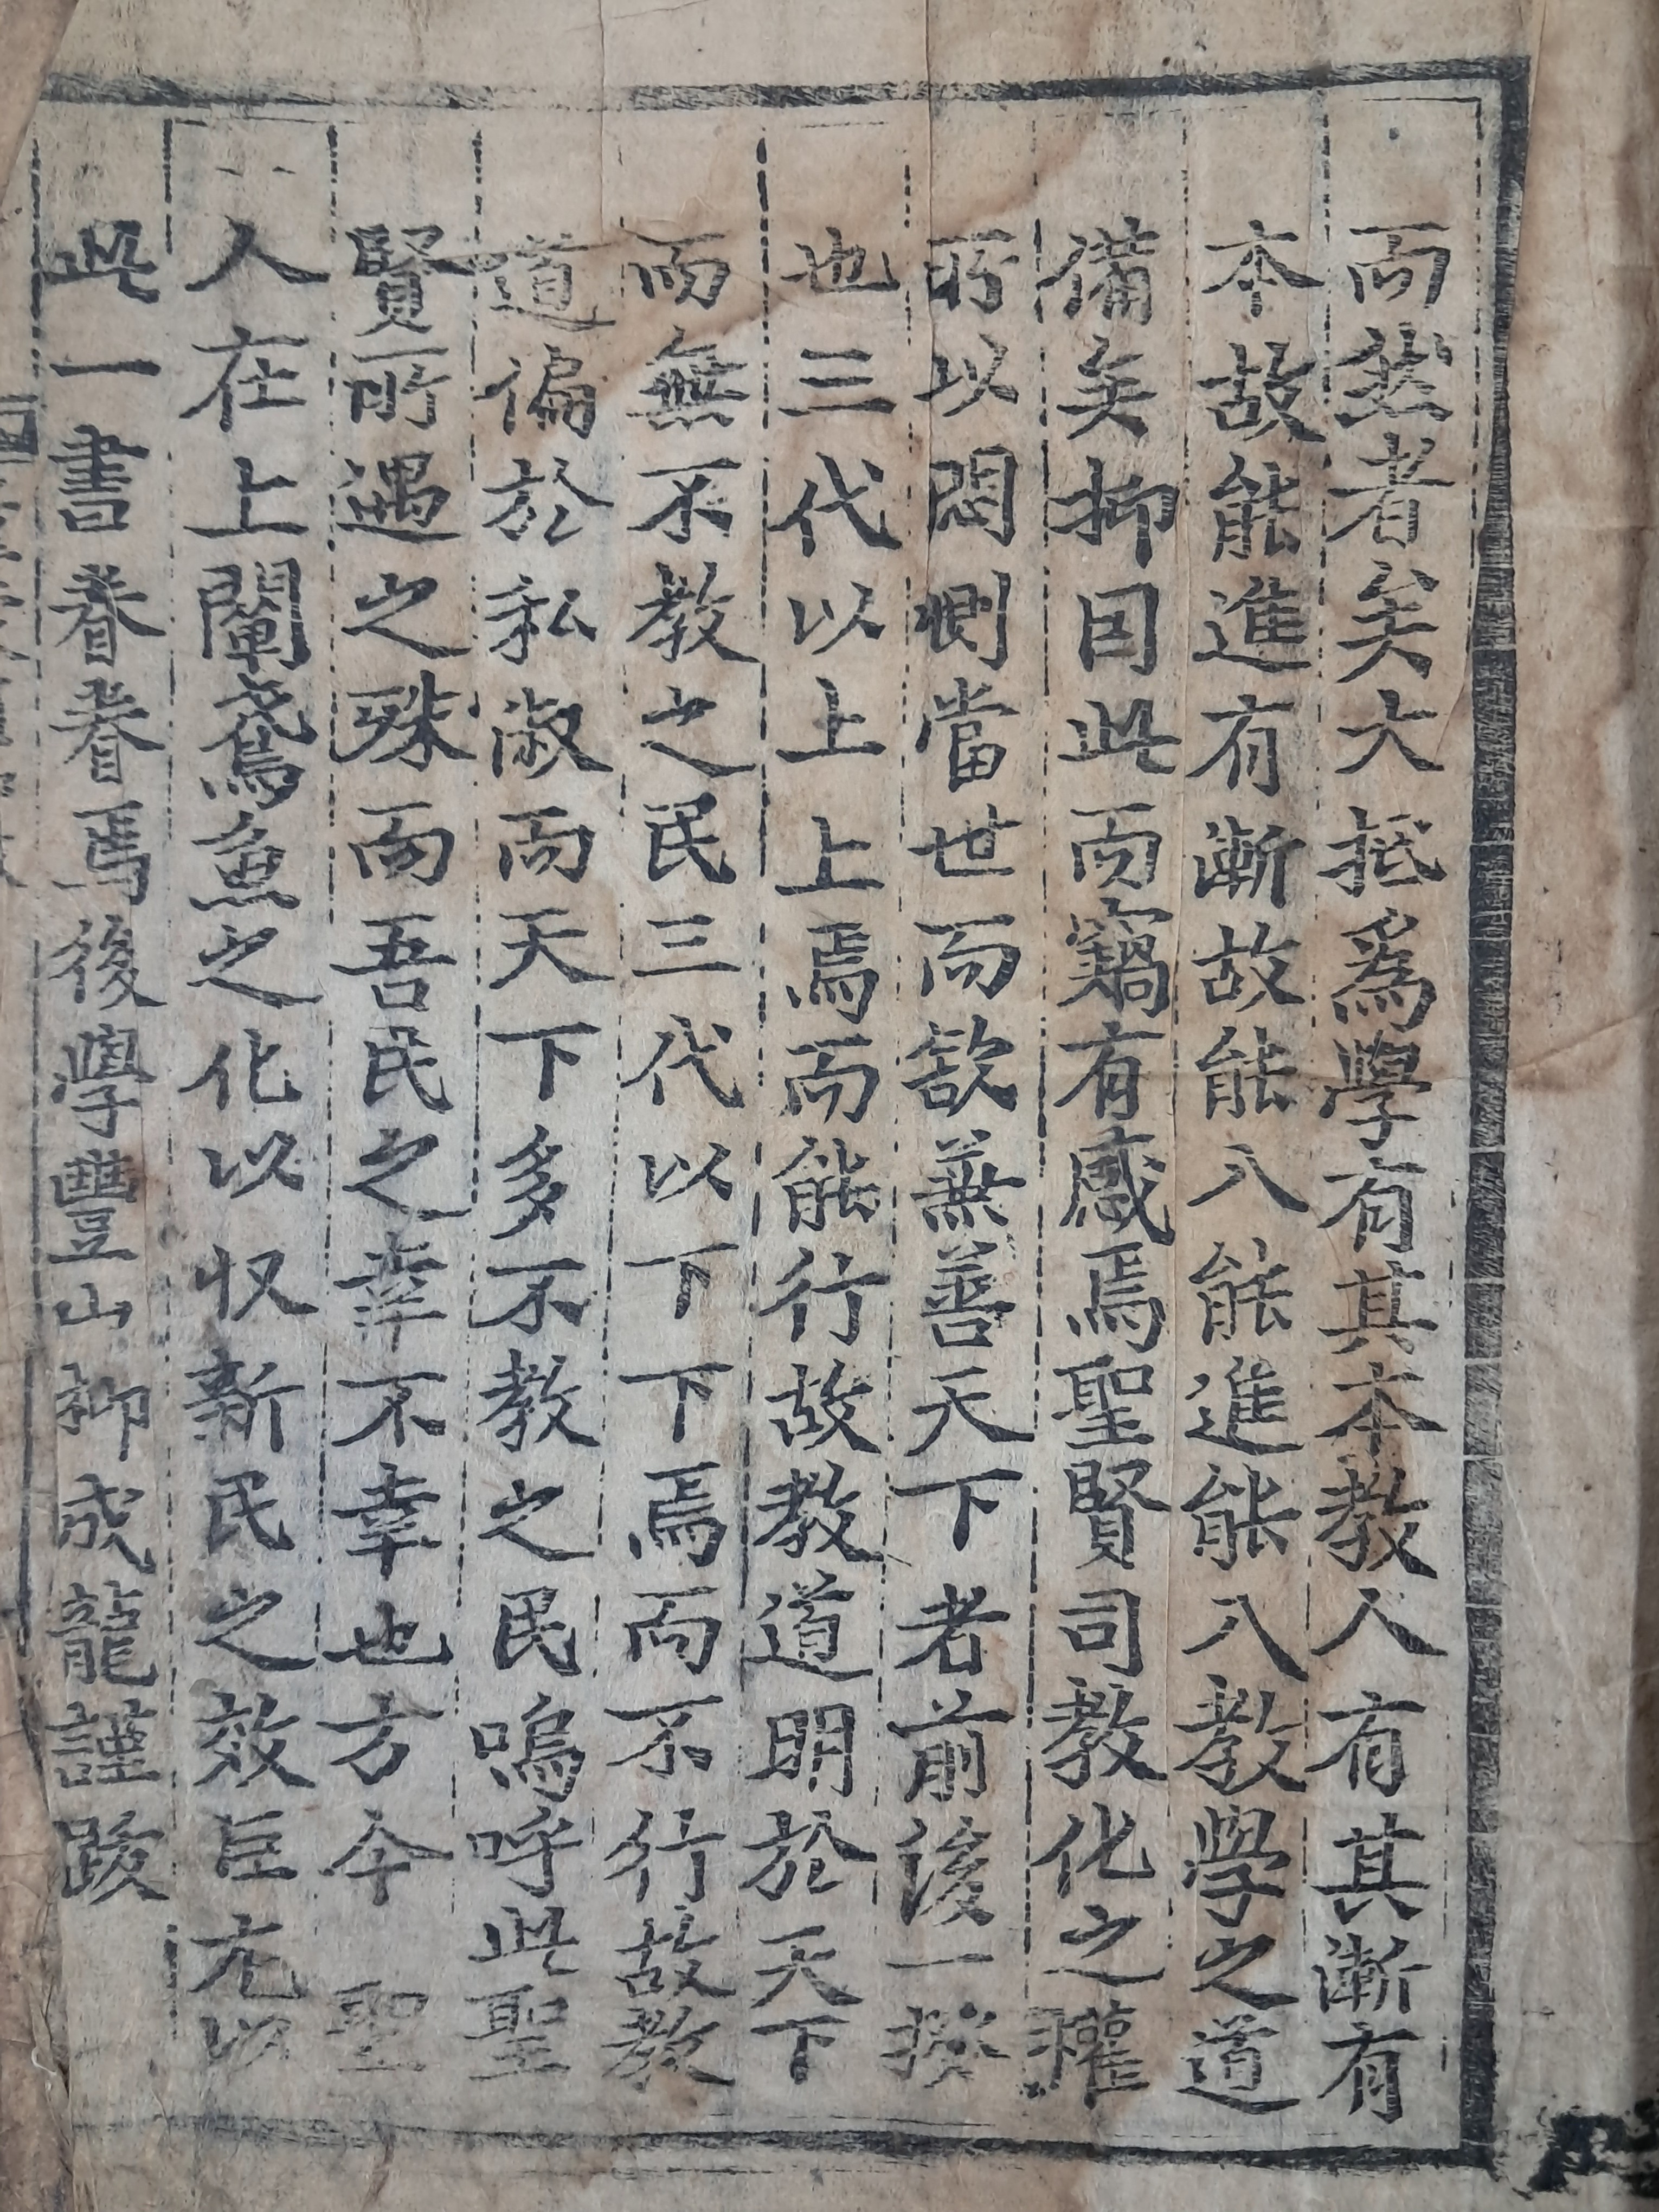 而然者矣大抵爲學有其本教人有其漸有
本故能進有漸故能入能進能入教學之道
備矣抑因此而竊有感焉聖賢司教化之權
所以悶惻當世而欲兼善天下者前後一揆
也三代以上上焉而能行故教道明於天下
而無不教之民三代以下下焉而不行故教
道偏於私淑而天下多不教之民嗚呼此聖
賢所遇之殊而吾民之幸不幸也方今 聖
人在上闡鳶魚之化以收新民之效臣尤以
此一書眷眷焉後學豊山柳成龍謹跋